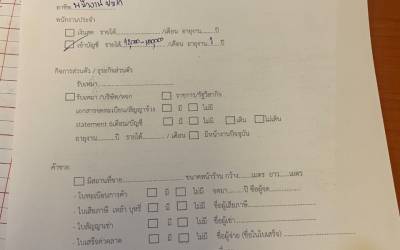 อาชีพ พนักงานขับรถ
พนักงานประจำ
เงินสด รายได้............/เดือน อายุงาน......ปี
เข้าบัญชี รายได้ /เดือน อายุงาน 1 ปี
กิจการส่วนตัว / ธุรกิจส่วนตัว
รับเหมา
รับเหมา /บริษัท/หจก ราชการ/รัฐวิสาหกิจ
เอกสารจดทะเบียน/สัญญาจ้าง มี ไม่มี
statement 6เดือน/บัญชี มี ไม่มี เดิน ไม่เดิน
อายุงาน.........ปี รายได้............/ เดือน มีหน้างานปัจจุบัน
ค้าขาย
มีสถานที่ขาย............ขนาดหน้าร้าน กว้าง.......เมตร ยาว.......เมตร
- ใบทะเบียนการค้า มี ไม่มี จดมา.........ปี ชื่อผู้จด............
- ใบเสียภาษี เหล้า บุหรี่ มี ไม่มี ชื่อผู้เสียภาษี............
- ใบสัญญาเช่า มี ไม่มี ชื่อผู้เช่า............
- ใบเสร็จค่าตลาด มี ไม่มี ชื่อผู้จ่าย (ชื่อในใบเสร็จ)............